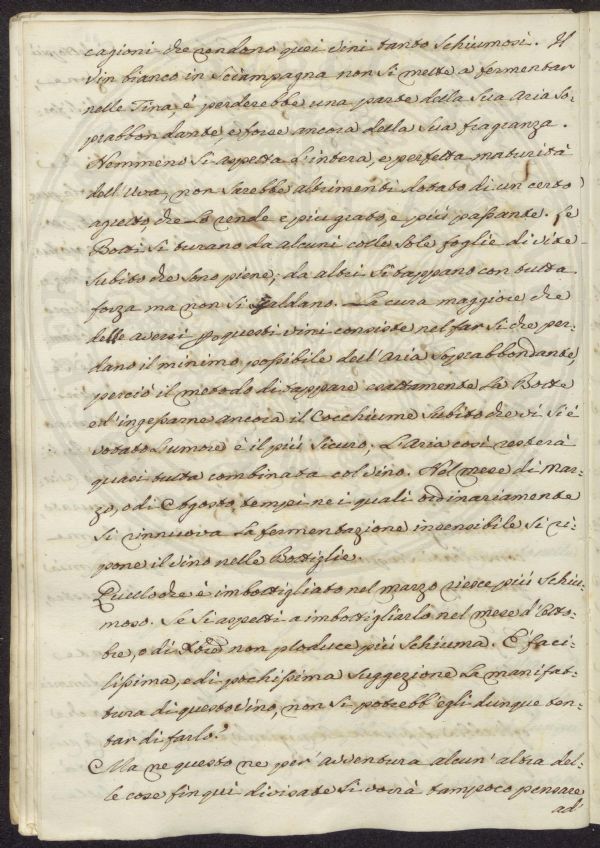 cagioni che rendono quei vini tanto Schiumosi. Il
Vin bianco in Sciampagna non si mette a fermentar
nelle Tina, é perderebbe una parte della Sua Aria so-
prabbondante, e forse ancora della Sua fragranza.
Nemmeno si aspetta l'intera, e perfetta maturità
dell'Uva, non sarebbe altrimenti dotato di un certo
agretto, che Lo rende e piu grato, e piú passante. Le
Botti si turano da alcuni colle sole foglie di vite
Subito che sono piene; da altri si tappano con tutta
forza ma non si
La cura maggiore che
delle aversi per questi vini consiste nel far si che per-
dano il minimo possibile dell'Aria Soprabbondante,
perciò il metodo di tappare esattamente La Botte
ed'ingessarne ancora il Cocchiume Subito che vi si é
votato L'umore è il piú Sicuro, L'Aria cosí resterà
quasi tutta combinata col vino. Nel mese di Mar-
zo, o di Agosto, tempi ne i quali ordinariamente
si rinnuova La fermentazione insensibile si ri-
pone il vino nelle Bottiglie.
Quello che è imbottigliato nel marzo riesce piú Schiu-
moso. Se si aspetti a imbottigliarlo nel mese d'Otto-
bre, o di Xbre non produce piú Schiuma. É faci-
lissima, e di pochissima Suggezione La manifat-
tura di questo Vino, non si potrebb'egli dunque ten-
tar di farlo?
Ma ne questo ne per avventura alcun'altra del-
le cose fin quí divisate si vorrà tampoco pensare
ad'